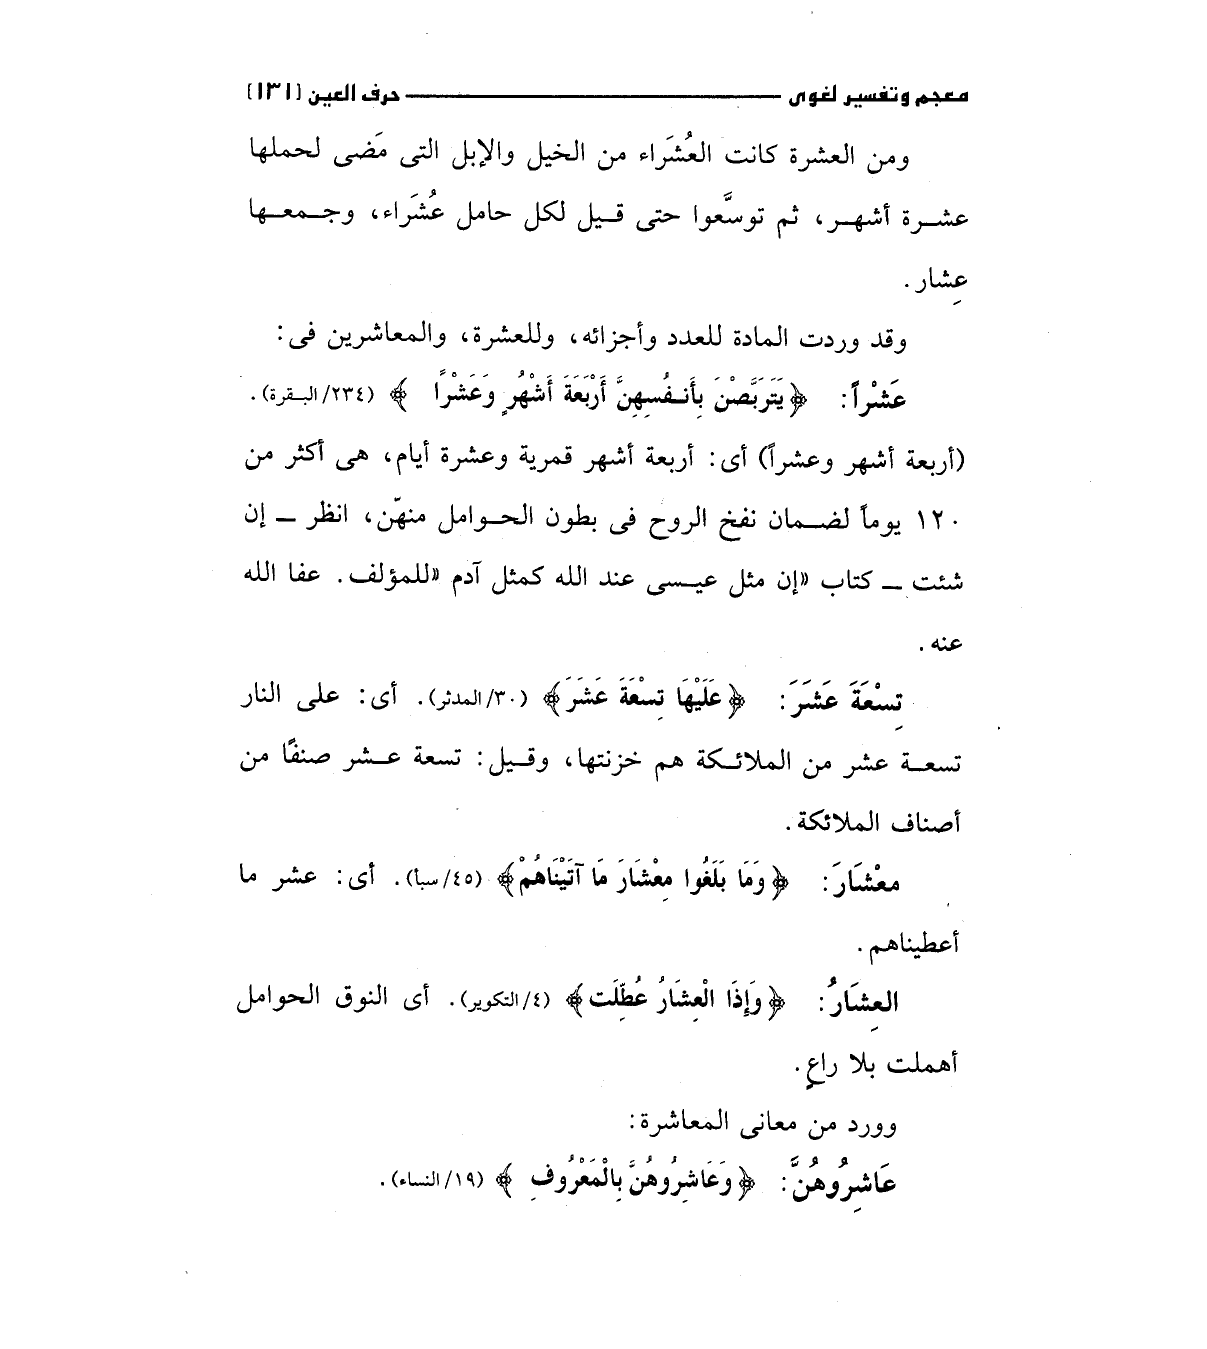 معجم وتفسير لغوى ــــــــ حرف العين [١٣١]
ومن العشرة كانت العُشَراء من الخيل والإبل التى مَضى لحملها
عشرة أشهر، ثم توسَّعوا حتى قيل لكل حامل عُشَراء، وجمعها
عِشار.
وقد وردت المادة للعدد وأجزائه، وللعشرة، والمعاشرين فى:
عَشْراً: ﴿يَتَرَبَّصْنَ بِأَنفُسِهِنَّ أَرْبَعَةَ أَشْهُرٍ وَعَشْرًا ﴾ (٢٣٤/البقرة).
(أربعة أشهر وعشراً) أى: أربعة أشهر قمرية وعشرة أيام، هى أكثر من
١٢٠ يوماً لضمان نفخ الروح فى بطون الحوامل منهّن، انظر ــ إن
شئت ــ كتاب «إن مثل عيسى عند الله كمثل آدم «للمؤلف. عفا الله
عنه.
تِسْعَةَ عَشَرَ: ﴿عَلَيْهَا تِسْعَةَ عَشَرَ﴾ (٣٠/المدثر). أى: على النار
تسعة عشر من الملائكة هم خزنتها، وقيل: تسعة عشر صنفًا من
أصناف الملائكة.
معْشَارَ: ﴿وَمَا بَلَغُوا مِعْشَارَ مَا آتَيْنَاهُمْ﴾ (٤٥/سبأ). أى: عشر ما
أعطيناهم.
العِشَارُ: ﴿وَإِذَا الْعِشَارُ عُطِّلَت﴾ (٤/التكوير). أى النوق الحوامل
أهملت بلا راعٍ.
وورد من معانى المعاشرة:
عَاشِرُوهُنَّ: ﴿وَعَاشِرُوهُنَّ بِالْمَعْرُوفِ ﴾ (١٩/النساء).